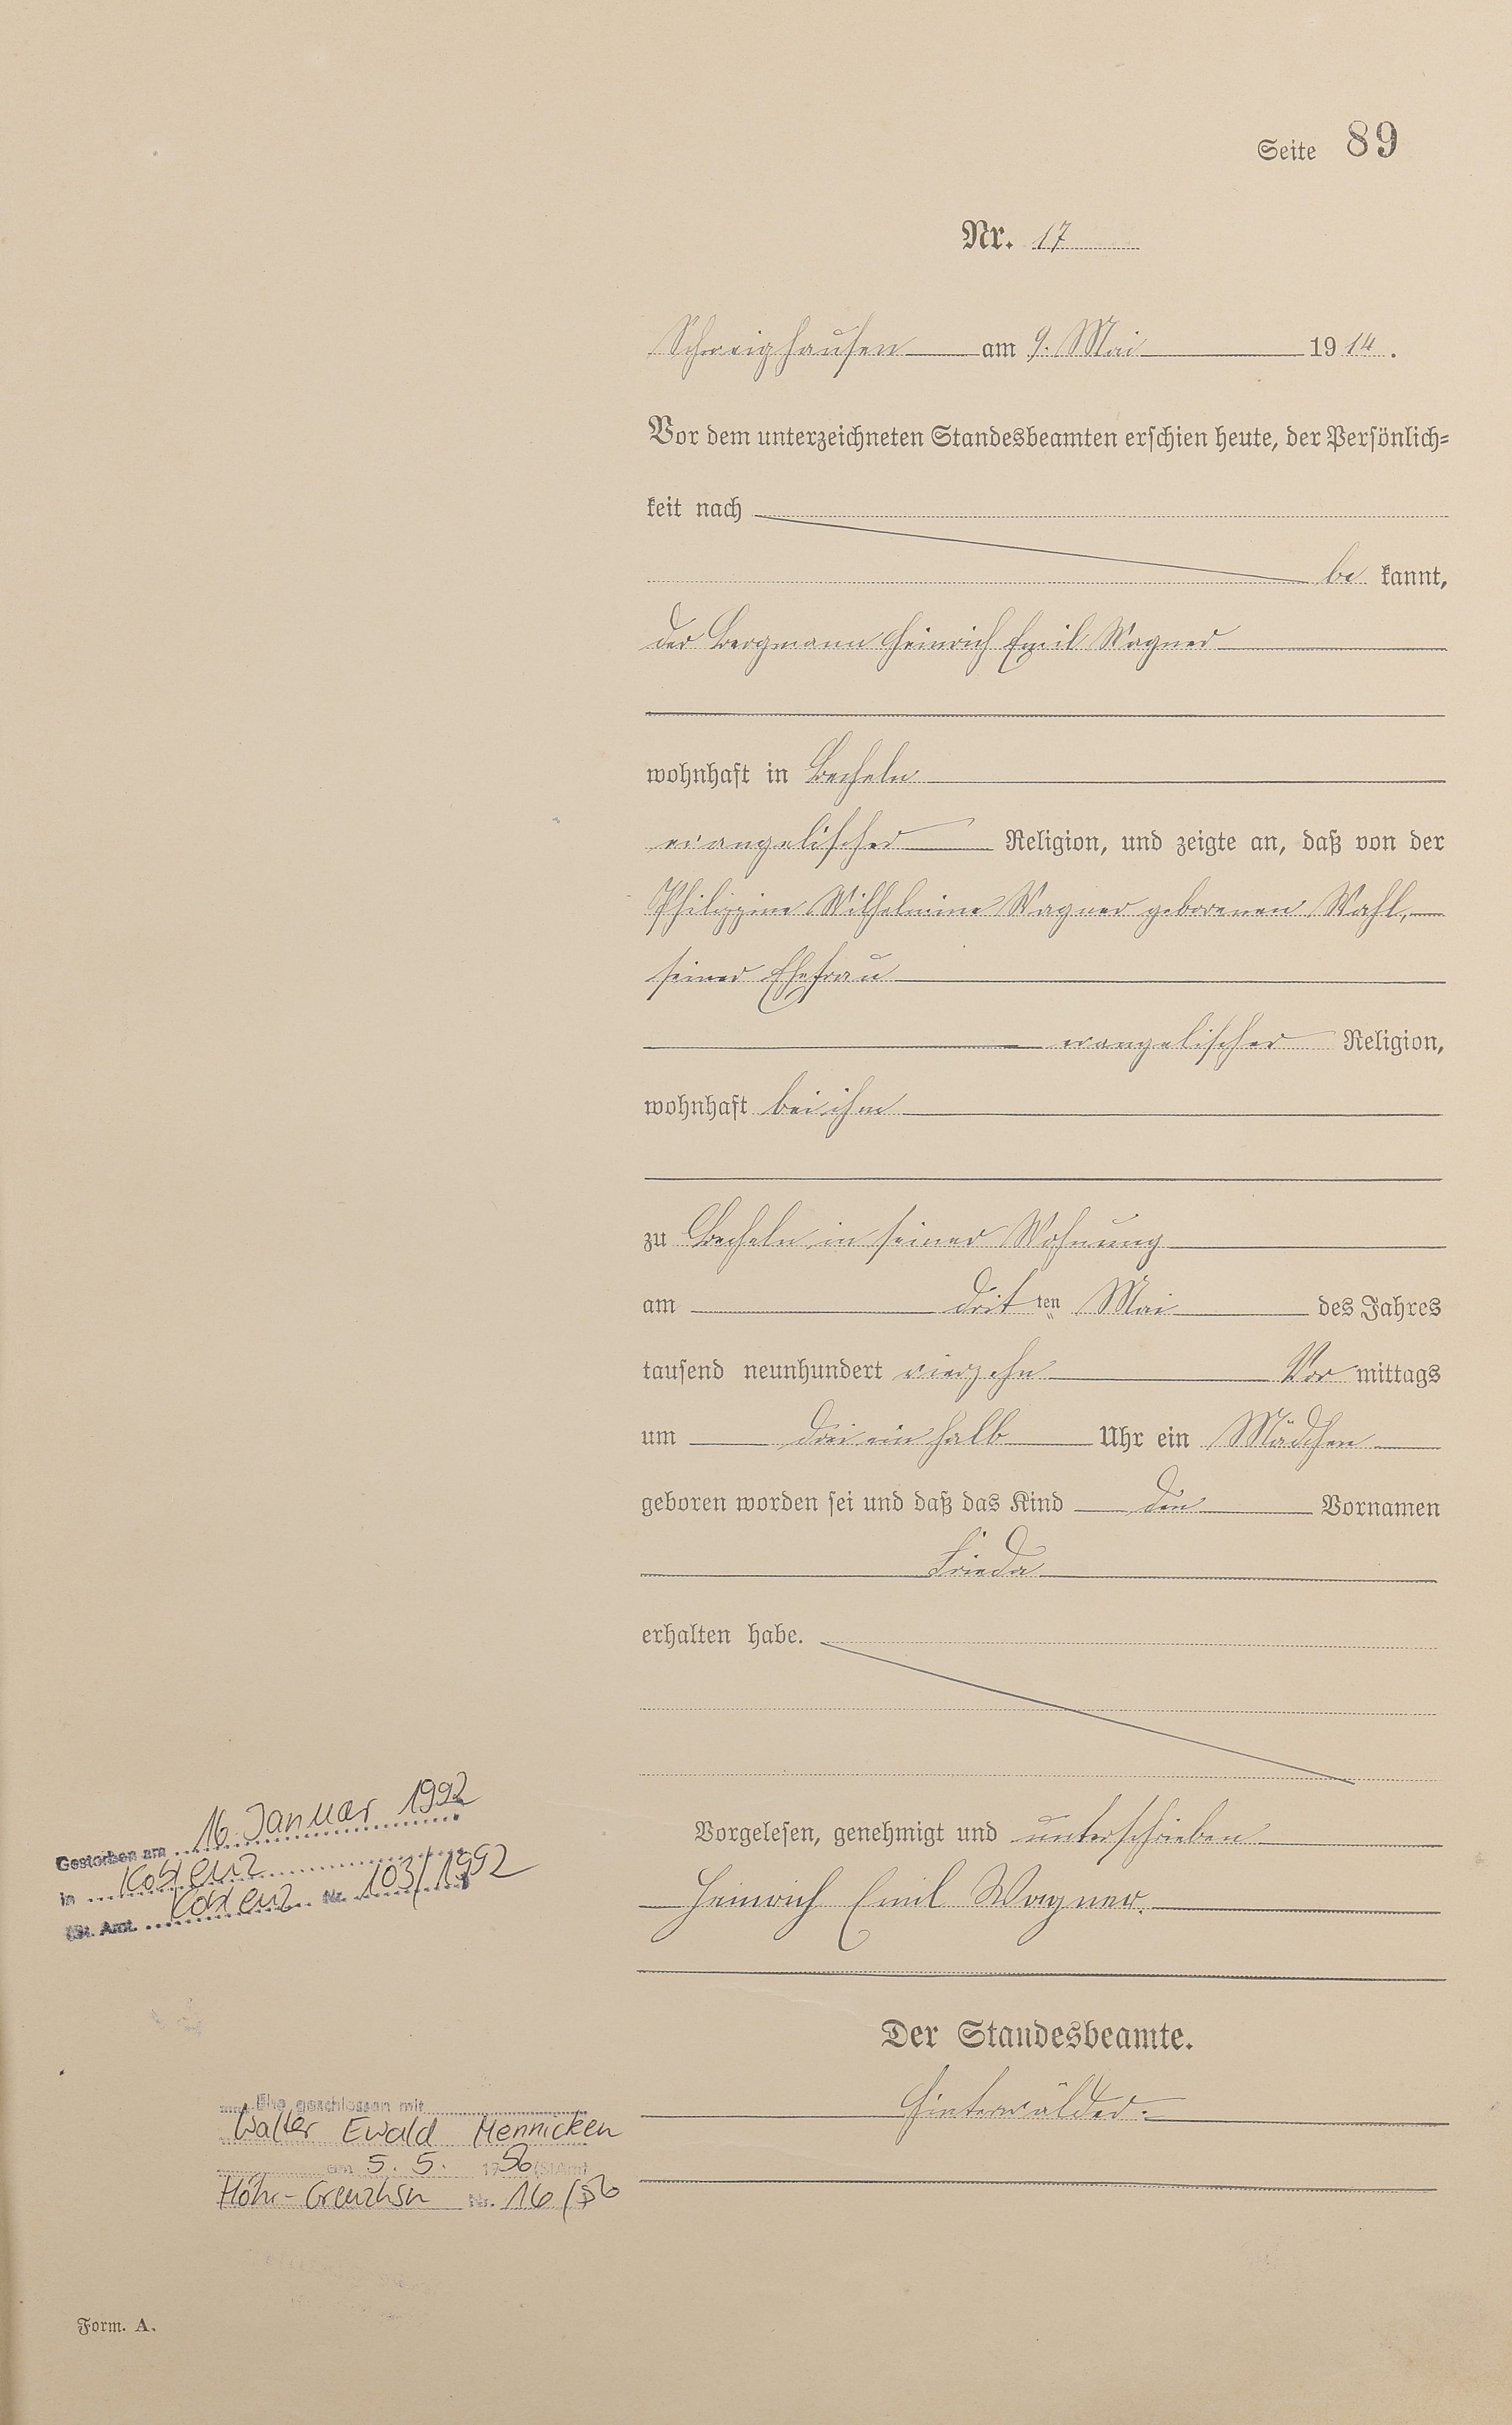 Seite 89
Nr. 17
Schweighausen am 9. Mai 1914.
Vor dem unterzeichneten Standesbeamten erschien heute, der Persönlich-
keit nach
be kannt,
der Bergmann Heinrich Emil Wagner
wohnhaft in Becheln
evangelischer Religion, und zeigte an, daß von der
Philippine Wilhelmine Wagner geborenen Wahl,
seiner Ehefrau
evangelischer Religion,
wohnhaft bei ihm
zu Becheln in seiner Wohnung
am dritten Mai des Jahres
tausend neunhundert vierzehn Vor mittags
um drei ein halb Uhr ein Mädchen
geboren worden sei und daß das Kind den Vornamen
Frieda
erhalten habe.
Vorgelesen, genehmigt und unterschrieben
Heinrich Emil Wagner.
Der Standesbeamte.
Hinterwälder
Gestorben am 16. Januar 1992
in Koblenz
(St. Amt. Koblenz Nr. 103/1992
Ehe geschlossen mit
Walter Ewald Mennicken
am 5. 5. 1956 (StAmt
Höhr-Grenzhsn Nr. 16/56
Form. A.